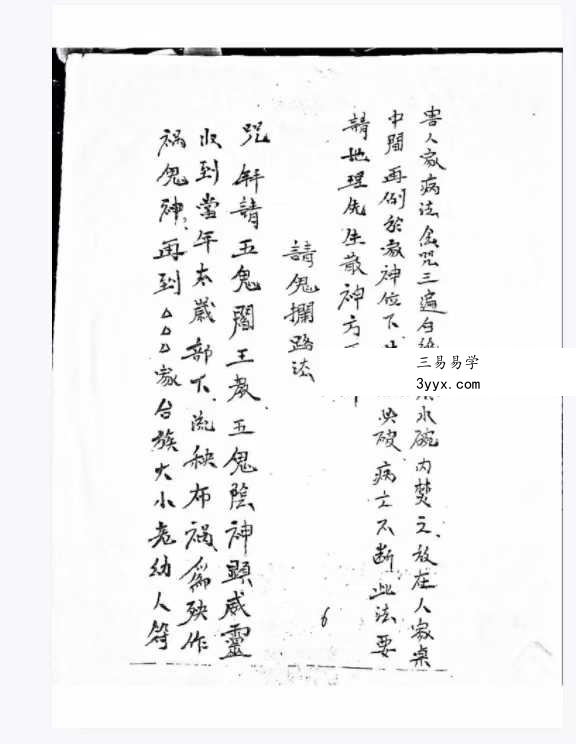 害人家病法念咒三遍白紙 水碗内焚之放在人家桌
中間再倒於家神位下 與破病亡不断此法要
請地理先生散神方
請鬼攔路法
咒 奸請五鬼閻王教五鬼陰神顯威靈
收到當年太歲部下流秧布禍為殃作
禍鬼神再到△△△家合族大小老幼人等
6
三易易学
3yyx.com